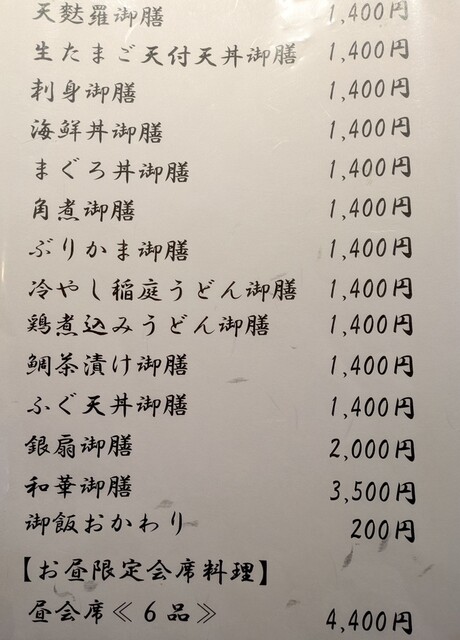 天麩羅御膳 1,400円
生たまご天付天丼御膳 1,400円
刺身御膳 1,400円
海鮮丼御膳 1,400円
まぐろ丼御膳 1,400円
角煮御膳 1,400円
ぶりかま御膳 1,400円
冷やし稲庭うどん御膳 1,400円
鶏煮込みうどん御膳 1,400円
鯛茶漬け御膳 1,400円
ふぐ天丼御膳 1,400円
銀扇御膳 2,000円
和華御膳 3,500円
御飯おかわり 200円
【お昼限定会席料理】
昼会席≪６品≫ 4,400円